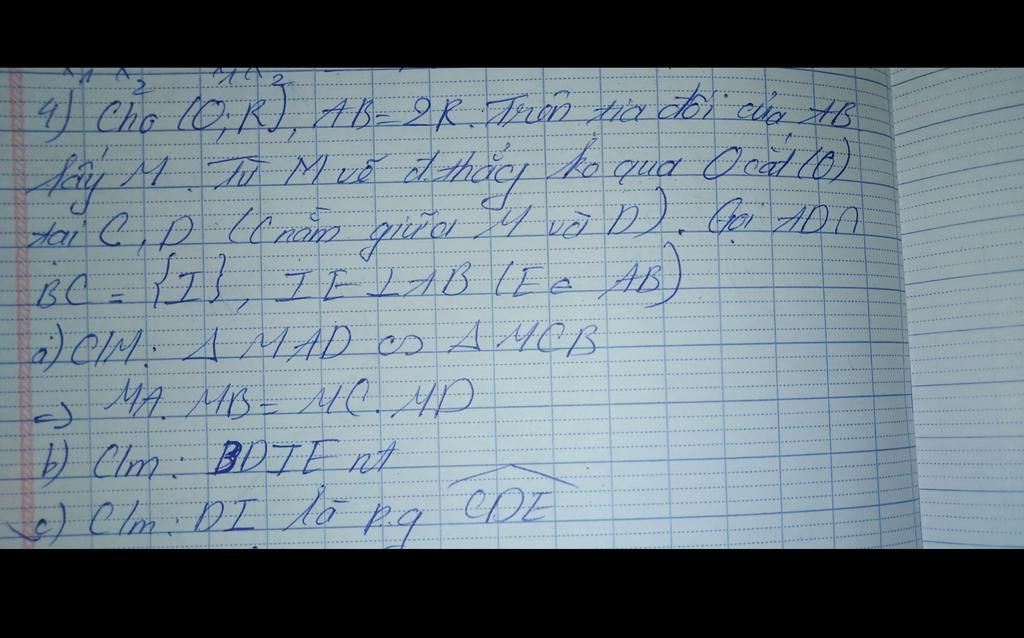 4) Cho (O; R), AB = 2R. Trên tia đối của AB
lấy M. Từ M vẽ đ.thẳg ko qua O cắt (O)
tại C, D (C nằm giữa M và D). Gọi AD ∩
BC = {I}, IE ⊥ AB (E ∈ AB)
a) C/M: Δ MAD ∽ Δ MCB
=> MA. MB = MC. MD
b) C/m: BDIE nt
c) C/m: DI là p.g CDE